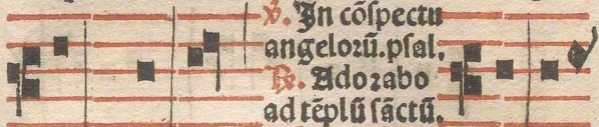 ℣. In cõſpectu
angeloꝝũ.pſal.
℟. Adoꝛabo
ad tẽplũ ſãctũ.